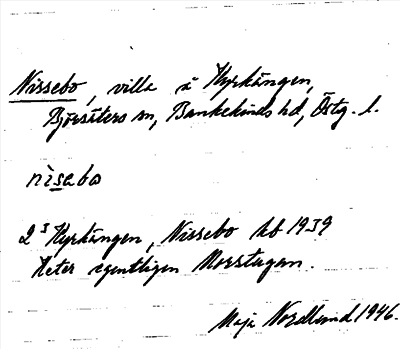 Nissebo, villa å Kyrkängen,
Björsäters sn, Bankekinds hd, Östg. l.
nìsebo
2 I Kyrkängen, Nissebo kb 1939
Heter egentligen Norrstugan.
Maja Nordlund 1946.